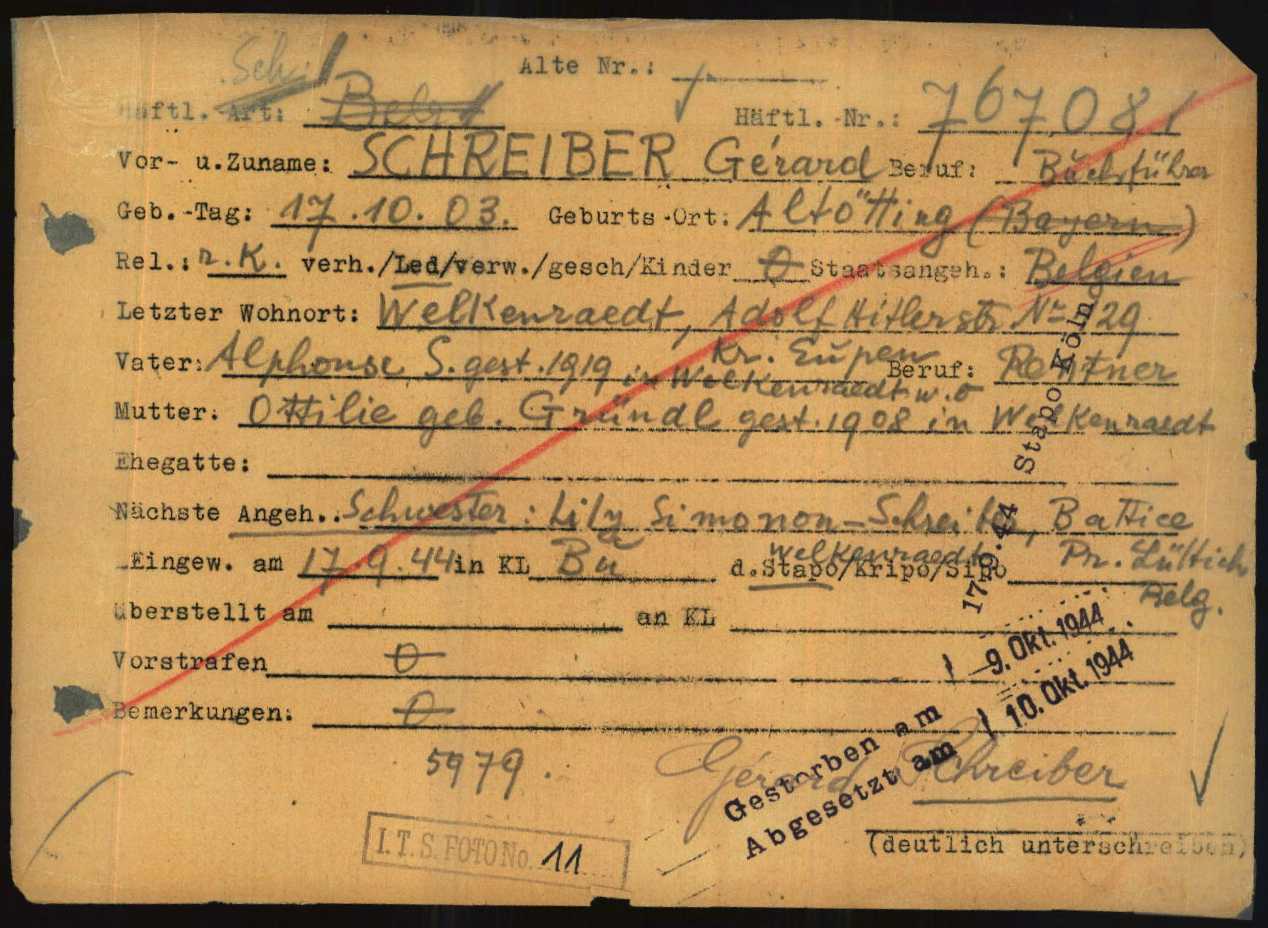 Sch.
Alte Nr.:
Häftl.-Art: Belg. Häftl.-Nr.: 76708/
Vor- u.Zuname: SCHREIBER Gérard Beruf: Buchführer
Geb.-Tag: 17.10.03. Geburts-Ort: Altötting (Bayern)
Rel.: r.K. verh./Led/verw./gesch/Kinder 0 Staatsangeh.: Belgien
Letzter Wohnort: Welkenraedt, Adolf Hitlerstr. No 29
Kr. Eupen
Vater: Alphonse S. gest. 1919 in Welkenraedt w. o Beruf: Rentner
Mutter: Ottilie geb. Gründl gest. 1908 in Welkenraedt
Ehegatte:
Nächste Angeh.. Schwester: Lily Simonon-Schreiber, Battice
Welkenraedt Pr. Lüttich
Eingew. am 17.9.44 in KL Bu d.Stapo/Kripo/Sipo
Belg.
17.9.44 Stapo Köln
überstellt am an KL
Vorstrafen 0
Bemerkungen: 0
Gestorben am 9. Okt. 1944
Abgesetzt am 10. Okt. 1944
5979.
Gérard Schreiber
(deutlich unterschreiben)
I.T.S. FOTO No. 11